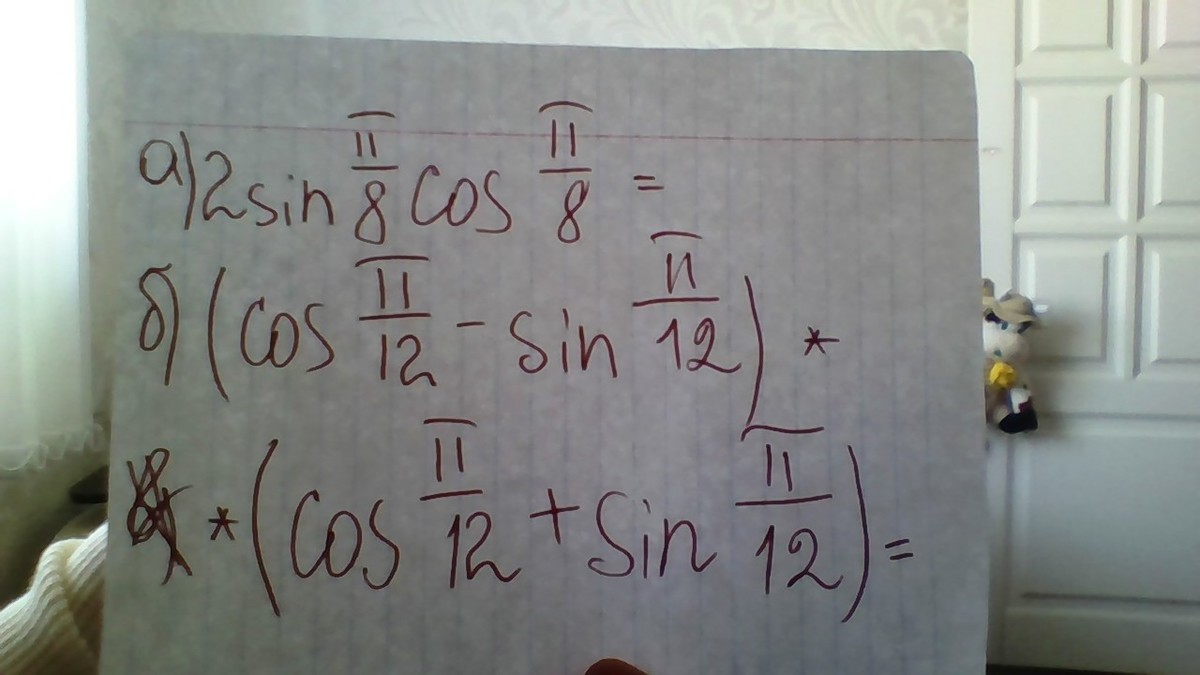 а) 2 sin π/8 cos π/8 =
б) (cos π/12 - sin π/12) *
* (cos π/12 + sin π/12) =